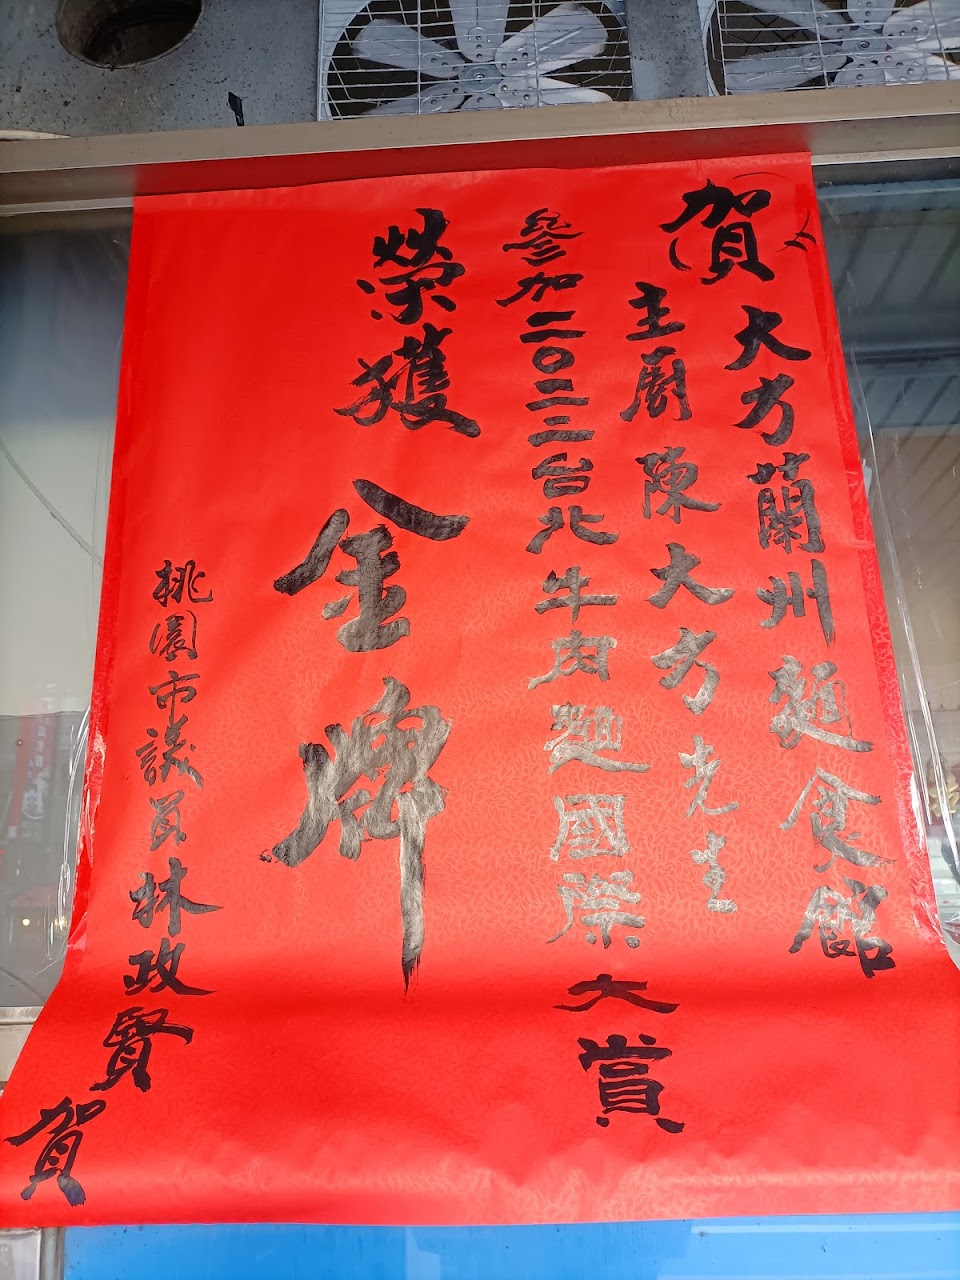 賀大方蘭州麵食館
主廚陳大方先生
參加二〇二二台北牛肉麵國際大賞
榮獲金牌
桃園市議員林政賢賀